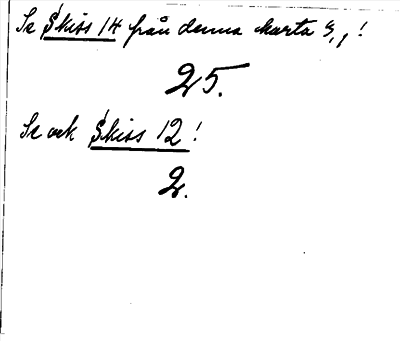 Se Skiss 14 från denna karta 9,, !
25.
Se ock Skiss 12 !
2.